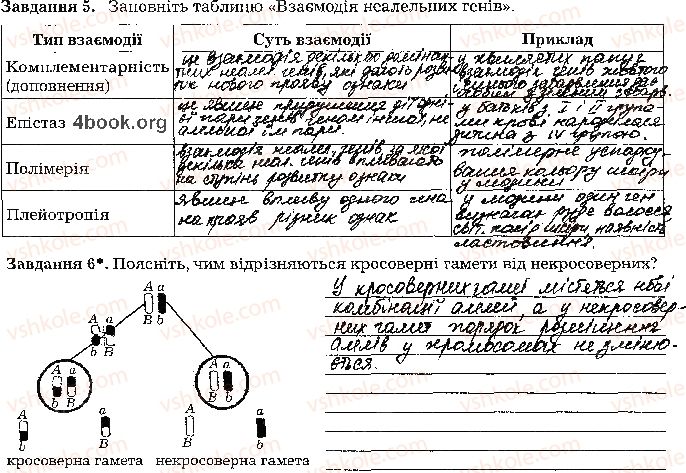 Завдання 5. Заповніть таблицю «Взаємодія неалельних генів».
Тип взаємодії
Суть взаємодії
Приклад
Комплементарність
(доповнення)
це взаємодія декількох доміна-
тних неалел. генів, які дають розви-
ток нового прояву ознаки
у хвилястих папуг
взаємодія генів жовтого
Епістаз 4book.org
це явище пригнічення дії одні-
єї пари генів геном іншої, не
алельної їм пари.
у батьків з I і II група-
ми крові народилася
дитина з IV групою.
Полімерія
взаємодія неалел. генів за якої
декілька неал. генів впливають
на ступінь розвитку ознаки
полімерне успадку-
вання кольору шкіри
у людини
Плейотропія
явище впливу одного гена
на прояв різних ознак
у людини один ген
визначає руде волосся
світ. колір шкіри, наявність
ластовиння.
Завдання 6*. Поясніть, чим відрізняються кросоверні гамети від некросоверних?
У кросоверних гамет містяться нові
комбінації алелей, а у некросовер-
них гамет порядок розміщення
алелів у хромосомах не зміню-
ється.
A a
B b
A a
b B
A a
b B
A a
B b
A a
b B
A a
B b
кросоверна гамета некросоверна гамета
vshkole.com